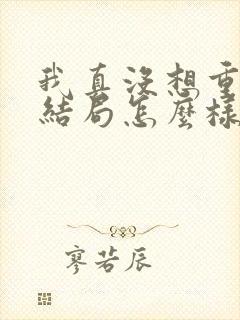 我真沒想重
結局怎麼樣
寥若辰